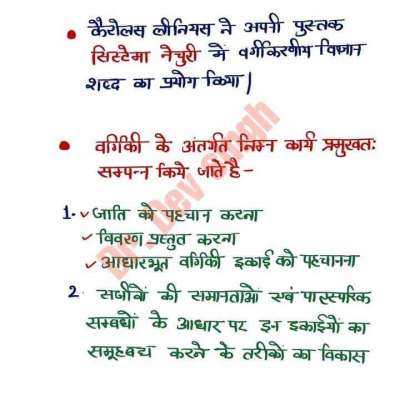 कैरोलस लीनियस ने अपनी पुस्तक
सिस्टेमा नेचुरी में वर्गीकरणीय विज्ञान
शब्द का प्रयोग किया|
वर्गिकी के अंतर्गत निम्न कार्य प्रमुखतः
सम्पन्न किये जाते है-
1- ✓ जाति को पहचान करना
✓ विवरण प्रस्तुत करना
✓ आधारभूत वर्गिकी इकाई को पहचानना
2 सजीवों की समानताओ एवं पारस्परिक
सम्बधों के आधार पर इन इकाईयों का
समूहबध्य करने के तरीकों का विकास
Dr. Dev singh